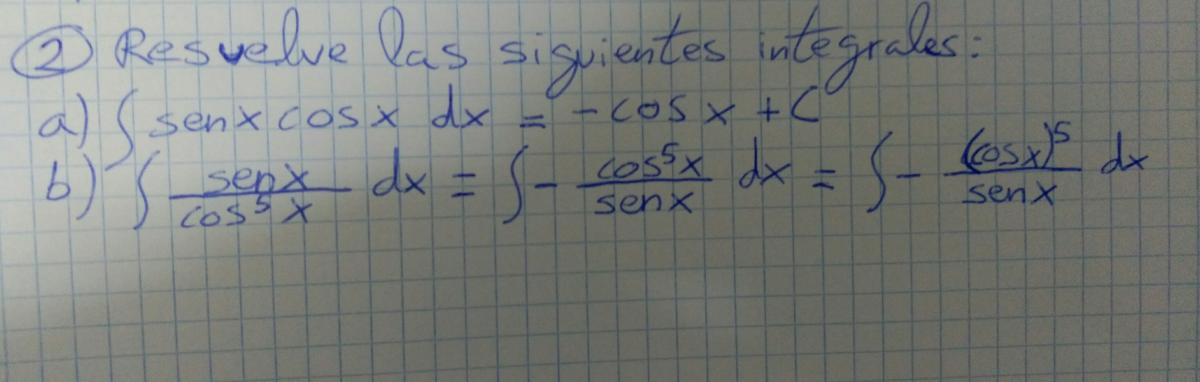 ② Resuelve las siguientes integrales:
a) ∫ senx cosx dx = -cosx + C
b) ∫ senx/cos⁵x dx = ∫ - cos⁵x/senx dx = ∫ - (cosx)⁵/senx dx